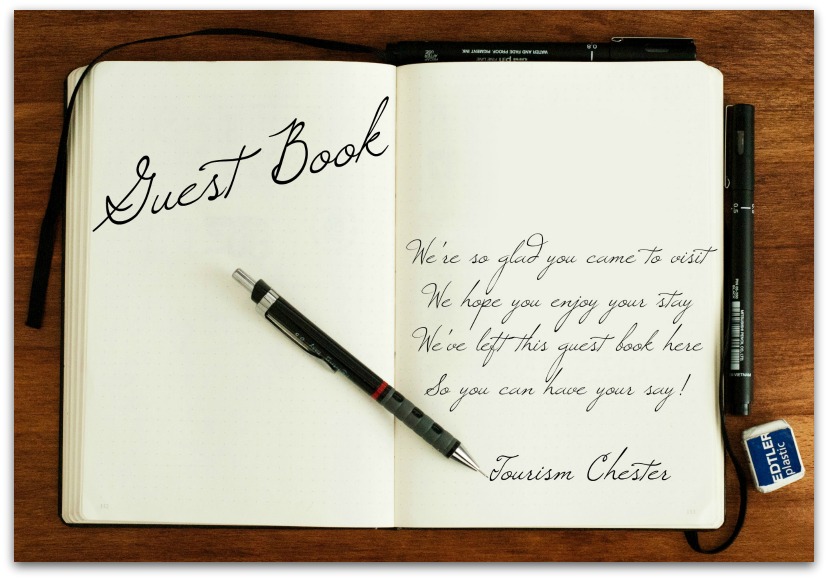 Guest Book
We're so glad you came to visit
We hope you enjoy your stay
We've left this guest book here
So you can have your say!
Tourism Chester
WATER AND FADE PROOF, PIGMENT INK
0.8
0.5
EDTLER
plastic